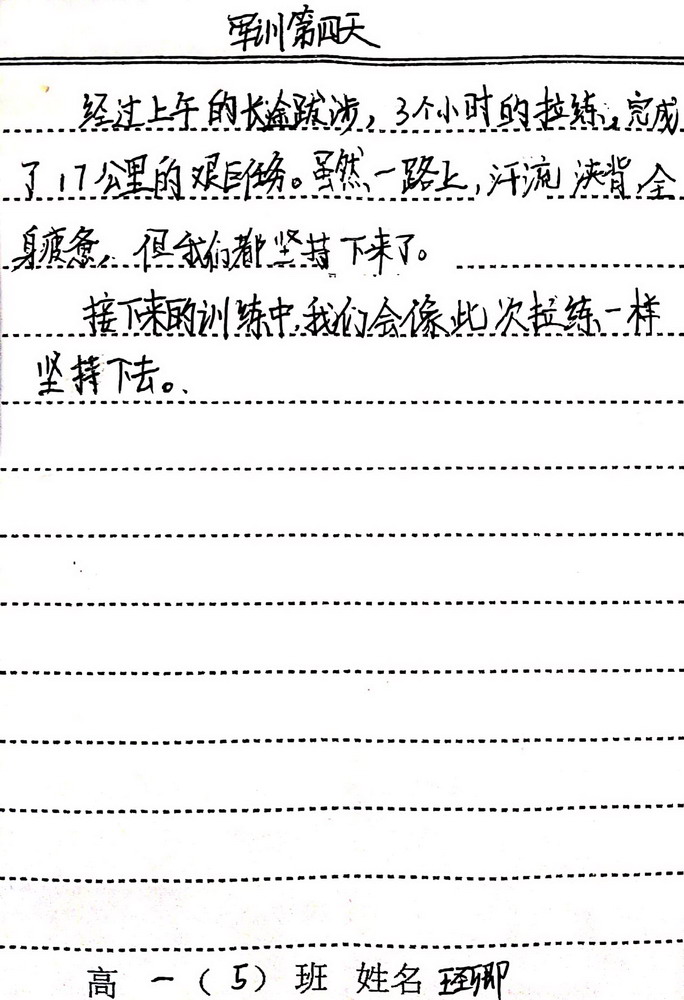 军训第四天
经过上午的长途跋涉，3个小时的拉练，完成
了17公里的艰巨任务。虽然一路上，汗流浃背，全
身疲惫，但我们都坚持下来了。
接下来的训练中，我们会像此次拉练一样
坚持下去。
高一（5）班 姓名